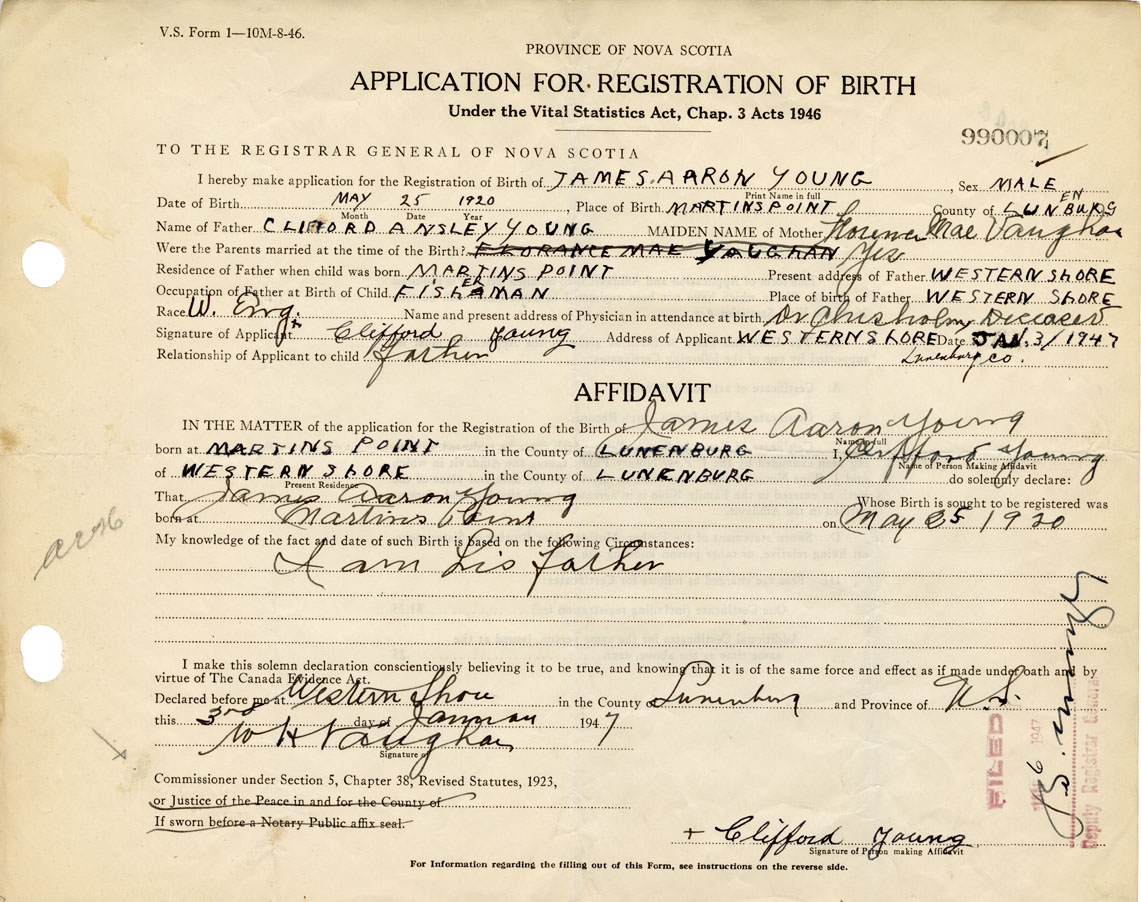 V.S. Form 1—10M-8-46.
PROVINCE OF NOVA SCOTIA
APPLICATION FOR REGISTRATION OF BIRTH
Under the Vital Statistics Act, Chap. 3 Acts 1946
990007
TO THE REGISTRAR GENERAL OF NOVA SCOTIA
I hereby make application for the Registration of Birth of JAMES AARON YOUNG, Sex MALE
Print Name in full
Date of Birth MAY 25 1920, Place of Birth MARTINS POINT County of LUNENBURG
Month Date Year
Name of Father CLIFFORD ANSLEY YOUNG MAIDEN NAME of Mother Florence Mae Vaughan
Were the Parents married at the time of the Birth? FLORANCE MAE VAUGHAN Yes
Residence of Father when child was born MARTINS POINT Present address of Father WESTERN SHORE
Occupation of Father at Birth of Child FISHERMAN Place of birth of Father WESTERN SHORE
Race W. Eng. Name and present address of Physician in attendance at birth Dr Chisholm Deceased
Signature of Applicant Clifford Young Address of Applicant WESTERN SHORE Date JAN. 3/1947
Relationship of Applicant to child father Lunenburg Co.
AFFIDAVIT
IN THE MATTER of the application for the Registration of the Birth of James Aaron Young
Name in full
born at MARTINS POINT in the County of LUNENBURG I, Clifford Young
Name of Person Making Affidavit
of WESTERN SHORE in the County of LUNENBURG do solemnly declare:
Present Residence
That James Aaron Young Whose Birth is sought to be registered was
born at Martins Point on May 25 1920
My knowledge of the fact and date of such Birth is based on the following Circumstances:
I am his father
I make this solemn declaration conscientiously believing it to be true, and knowing that it is of the same force and effect as if made under oath and by
virtue of The Canada Evidence Act.
Declared before me at Western Shore in the County of Lunenburg and Province of N.S.
this 3rd day of January 1947
W H Vaughan
Signature of
Commissioner under Section 5, Chapter 38, Revised Statutes, 1923,
or Justice of the Peace in and for the County of
If sworn before a Notary Public affix seal.
+ Clifford Young
Signature of Person making Affidavit
For Information regarding the filling out of this Form, see instructions on the reverse side.
FILED
1947
Deputy Registrar General